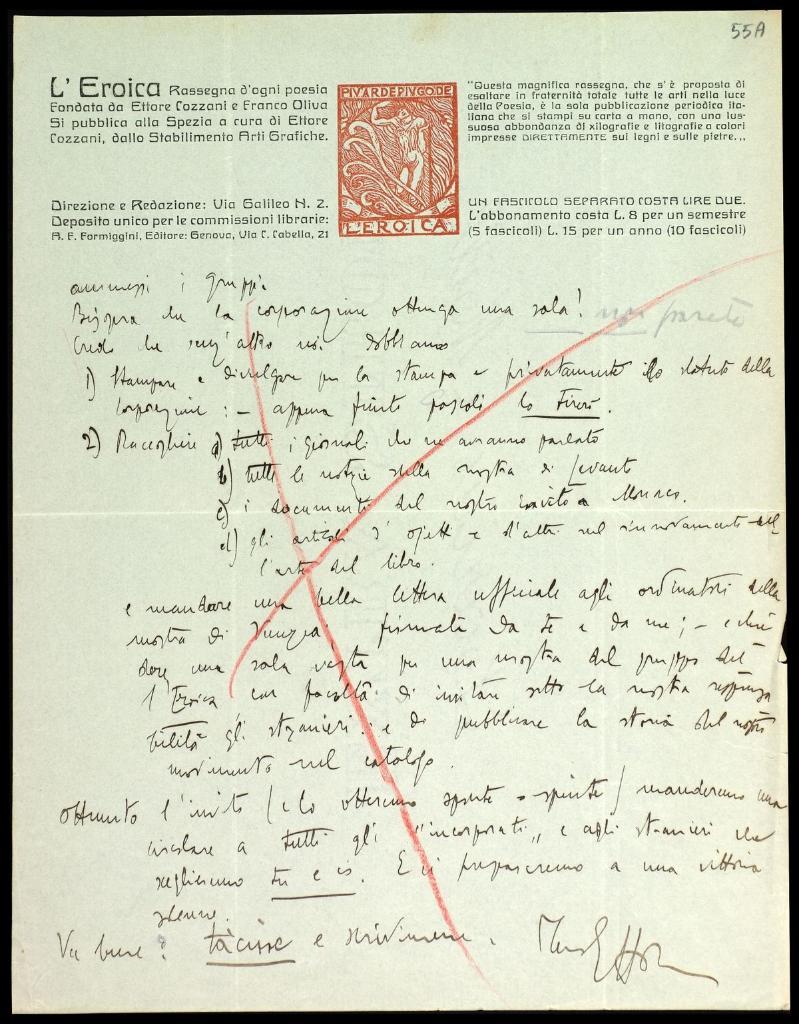 55A
L'Eroica Rassegna d'ogni poesia
Fondata da Ettore Cozzani e Franco Oliva
Si pubblica alla Spezia a cura di Ettore
Cozzani, dallo Stabilimento Arti Grafiche.
Direzione e Redazione: Via Galileo N. 2.
Deposito unico per le commissioni librarie:
A. F. Formiggini, Editore: Genova, Via C. Cabella, 21
PIVARDEPIVGODE
L'EROICA
"Questa magnifica rassegna, che s'è proposta di
esaltare in fraternità totale tutte le arti nella luce
della Poesia, è la sola pubblicazione periodica ita-
liana che si stampi su carta a mano, con una lus-
suosa abbondanza di xilografie e litografie a colori
impresse DIRETTAMENTE sui legni e sulle pietre.,,
UN FASCICOLO SEPARATO COSTA LIRE DUE.
L'abbonamento costa L. 8 per un semestre
(5 fascicoli) L. 15 per un anno (10 fascicoli)
ammessi i gruppi.
Bisogna che la corporazione ottenga una sala! non parete
Credo che senz'altro noi dobbiamo
1) Stampare e divulgare per la stampa e privatamente lo statuto della
Corporazione: – appena finito Pascoli lo
2) Raccogliere a) tutti i giornali che ne avranno parlato
b) tutte le notizie della mostra di Levanto
c) i documenti del nostro invito a Monaco.
d) gli articoli d'Ojetti e d'altri sul rinnovamento del
l'arte del libro.
e mandare una bella lettera ufficiale agli ordinatori della
mostra di Venezia: firmata da te e da me; – e chie
dere una sala vasta per una mostra del gruppo del
l'Eroica con facoltà di invitare sotto la nostra responsa
bilità gli stranieri: e di pubblicare la storia del nostro
movimento nel catalogo.
Ottenuto l'invito (e lo otterremo spinte o spunte) manderemo una
circolare a tutti gli "incorporati,, e agli stranieri che
scegliemmo tu e io. E ci prepareremo a una vittoria
Va bene? taci e scrivimene.